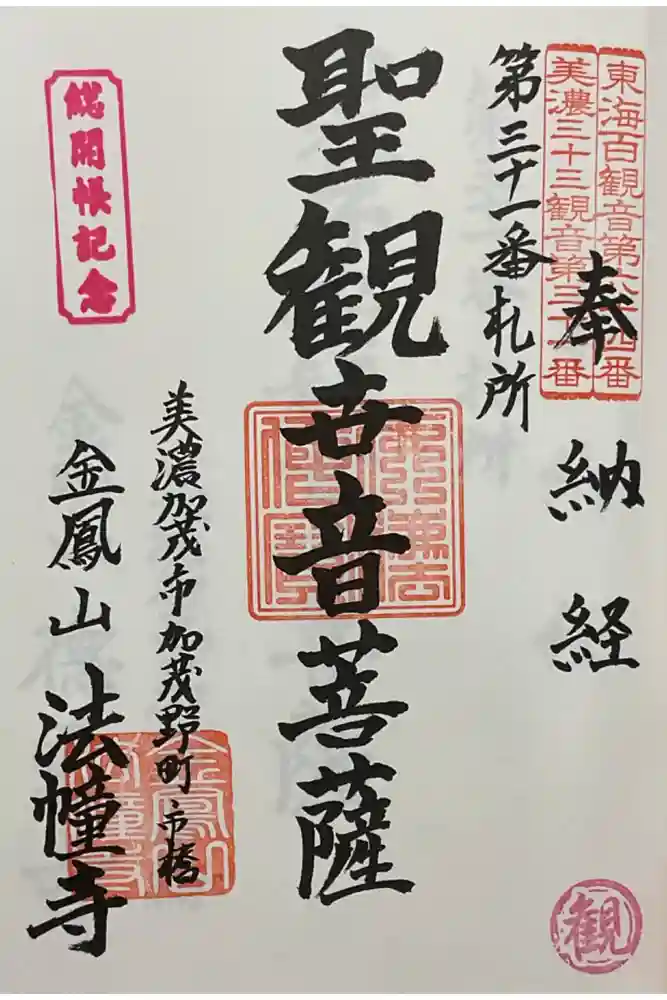 東海百観音第六十四番
美濃三十三観音第三十一番
奉納経
第三十一番札所
聖観世音菩薩
美濃加茂市加茂野町市橋
金鳳山法幢寺
総開帳記念
金鳳山
法幢寺
観